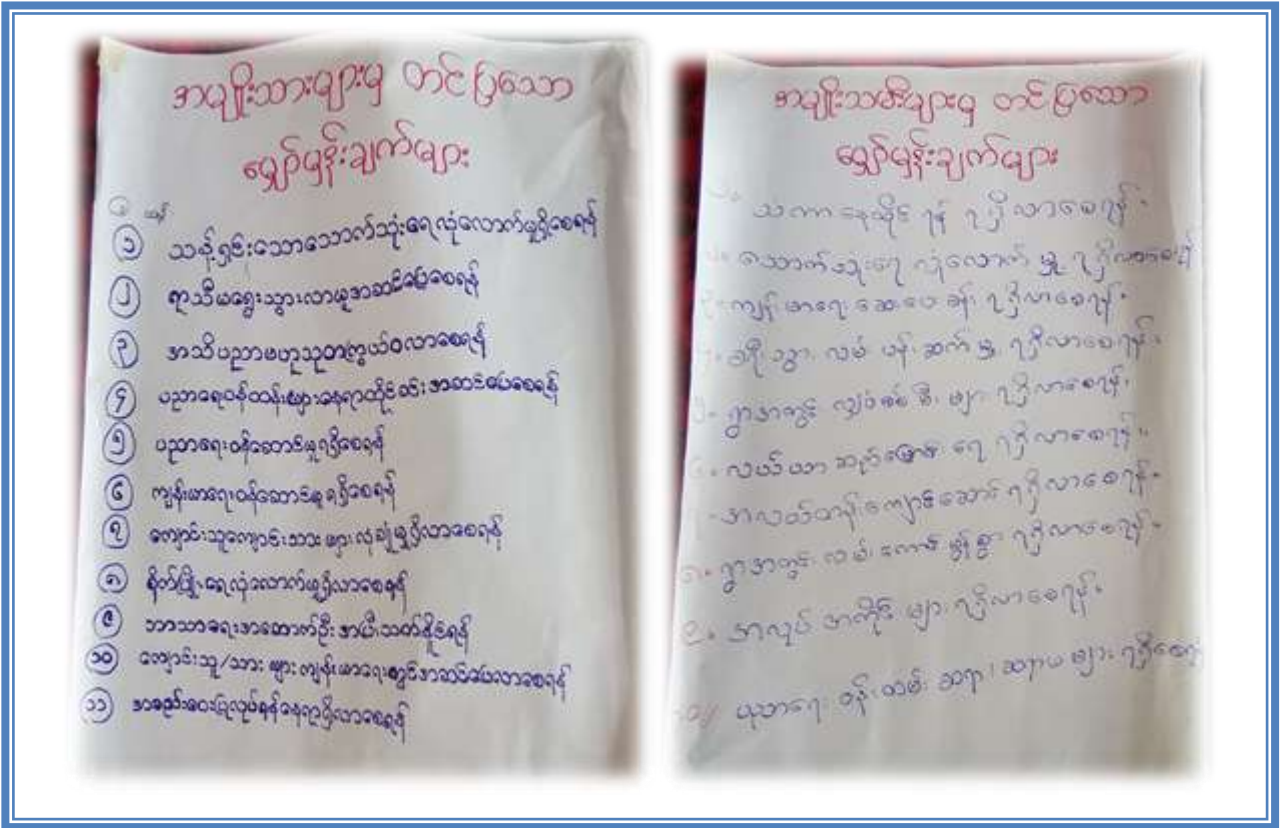 အမျိုးသားများမှ တင်ပြသော
မျှော်မှန်းချက်များ
၁ သန့်ရှင်းသောသောက်သုံးရေလုံလောက်မှုရှိစေရန်
၂ ရာသီမရွေးသွားလာမှုအဆင်ပြေစေရန်
၃ အသိပညာဗဟုသုတကြွယ်ဝလာစေရန်
၄ ပညာရေးဝန်ထမ်းများနေရာထိုင်ခင်းအဆင်ပြေစေရန်
၅ ပညာရေးဝန်ဆောင်မှုရရှိစေရန်
၆ ကျန်းမာရေးဝန်ဆောင်မှုရရှိစေရန်
၇ ကျောင်းသူကျောင်းသားများလုံခြုံမှုရှိလာစေရန်
၈ စိုက်ပျိုးရေလုံလောက်မှုရှိလာစေရန်
၉ ဘာသာရေးအဆောက်ဦးအပြီးသတ်နိုင်ရန်
၁၀ ကျောင်းသူ/သားများကျန်းမာရေးတွင်အဆင်ပြေလာစေရန်
၁၁ အစည်းဝေးပြုလုပ်ရန်နေရာရှိလာစေရန်
အမျိုးသမီးများမှ တင်ပြသော
မျှော်မှန်းချက်များ
ရရှိလာစေရန်။
၂။ သောက်သုံးရေ လုံလောက်မှု ရရှိလာစေရန်
၃။ ကျန်းမာရေး ဆေးပေးခန်း ရရှိလာစေရန်။
၄။ ခရီးသွား လမ်းပန်းဆက်မှု ရရှိလာစေရန်။
၅။ ရွာအတွင်း လျှပ်စစ်မီးများ ရရှိလာစေရန်။
၆။ လယ်ယာ ဆည်မြောင်းရေ ရရှိလာစေရန်။
အလယ်တန်းကျောင်းဆောင် ရရှိလာစေရန်။
၈။ ရွာအတွင်း လမ်းကောင်းမွန်စွာ ရရှိလာစေရန်။
၉။ အလုပ်အကိုင်များ ရရှိလာစေရန်။
၁၀။ ပညာရေး ဝန်ထမ်း ဆရာ၊ ဆရာမများ ရရှိစေရန်